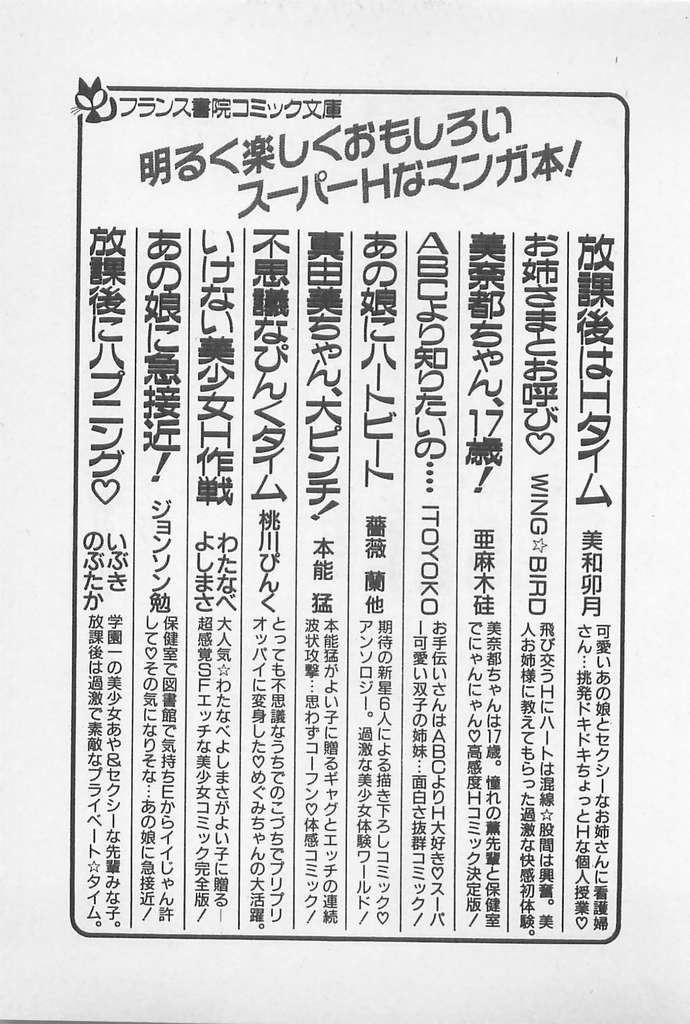 フランス書院コミック文庫
明るく楽しくおもしろい
スーパーHなマンガ本！
放課後はHタイム 美和卯月
可愛いあの娘とセクシーなお姉さんに看護婦
さん…挑発ドキドキちょっとHな個人授業♡
お姉さまとお呼び♡ WING☆BIRD
飛び交うHにハートは混線☆股間は興奮。美
人お姉様に教えてもらった過激な快感初体験。
美奈都ちゃん、17歳！ 亜麻木硅
美奈都ちゃんは17歳。憧れの薫先輩と保健室
でにゃんにゃん♡高感度Hコミック決定版！
ABCより知りたいの…… ITOYOKO
お手伝いさんはABCよりH大好き♡スーパ
ー可愛い双子の姉妹…面白さ抜群コミック！
あの娘にハートビート 薔薇 蘭他
期待の新星6人による描き下ろしコミック♡
アンソロジー。過激な美少女体験ワールド！
真由美ちゃん、大ピンチ！ 本能 猛
本能猛がよい子に贈るギャグとエッチの連続
波状攻撃…思わずコーフン♡体感コミック！
不思議なぴんくタイム 桃川ぴんく
とっても不思議なうちでのこづちでプリプリ
オッパイに変身した♡めぐみちゃんの大活躍。
いけない美少女H作戦 わたなべ
よしまさ
大人気☆わたなべよしまさがよい子に贈る―
超感覚SFエッチな美少女コミック完全版！
あの娘に急接近！ ジョンソン勉
保健室で図書館で気持ちEからイイじゃん許
して♡その気になりそな…あの娘に急接近！
放課後にハプニング♡ いぶき
のぶたか
学園一の美少女あや＆セクシーな先輩みな子。
放課後は過激で素敵なプライベート☆タイム。